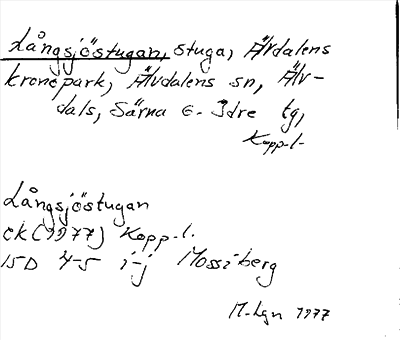 Långsjöstugan, stuga, Älvdalens
kronopark, Älvdalens sn, Älv-
dals, Särna o. Idre tg,
Kopp.l.
Långsjöstugan
ek (1977) Kopp.l.
15D 4-5 i-j Mossiberg
M-lgn 1977